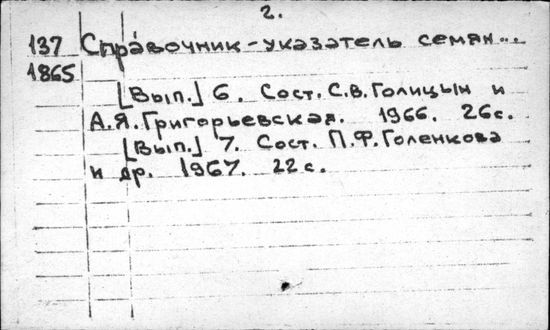 2.
137 Справочник-указатель семян...
1865
[Вып.] 6. Сост. С.В. Голицын и
А.Я. Григорьевская. 1966. 26с.
[Вып.] 7. Сост. П.Ф. Голенкова
и др. 1967. 22с.